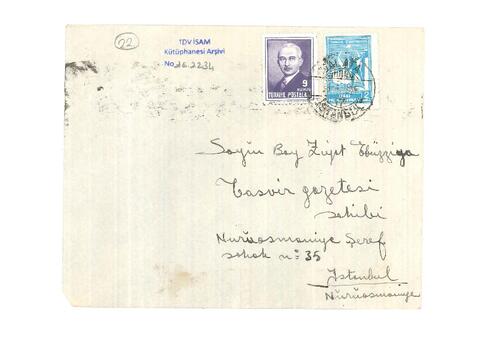 22
TDV İSAM
Kütüphanesi Arşivi
No 16.2234
9
KURUŞ
TÜRKİYE POSTALARI
İSTANBUL
Sayın Bay Ziyat Ebüzziya
Tasvir gazetesi
sahibi
Nuruosmaniye Şeref
sokak nº 35
İstanbul
Nuruosmaniye